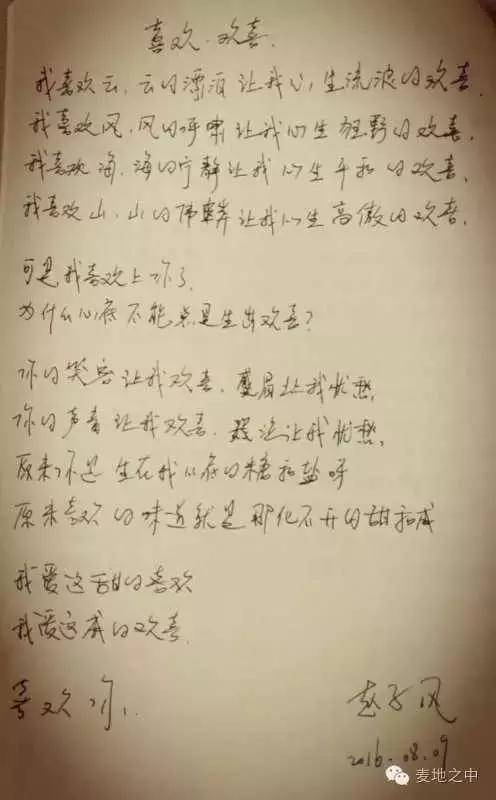 喜欢·欢喜
我喜欢云，云的漂泊让我心生流浪的欢喜。
我喜欢风，风的呼啸让我心生狂野的欢喜。
我喜欢海，海的宁静让我心生平和的欢喜。
我喜欢山，山的伟岸让我心生高傲的欢喜。
可是我喜欢上你了
为什么心底不能总是生出欢喜？
你的笑容让我欢喜，蹙眉让我忧愁。
你的声音让我欢喜，让我忧愁。
原来你是生在我心底的糖和盐呀
原来喜欢的味道就是那化不开的甜和咸
我爱这甜的喜欢
我爱这咸的欢喜
喜欢你。
赵子风
2016.08.09
麦地之中